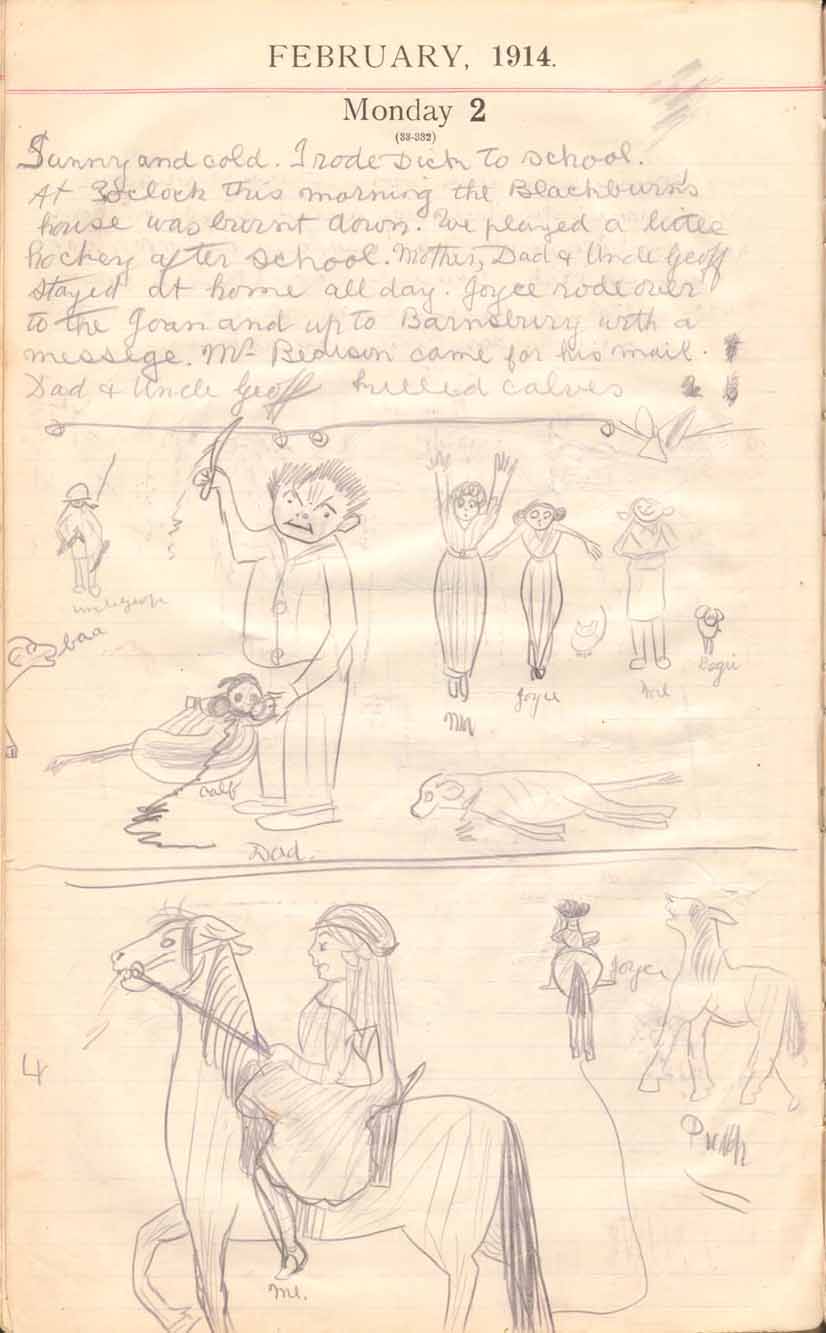 FEBRUARY, 1914.
Monday 2
(33-332)
Sunny and cold. I rode Dick to school.
At 3oclock this morning the Blackburn's
house was burnt down. We played a little
hockey after school. Mother, Dad & Uncle Geoff
stayed at home all day. Joyce rode over
to the Joan and up to Barnsbury with a
messege. Mr Bedison came for his mail.
Dad & Uncle Geoff killed calves
uncle Geoff
baa
Joyce
calf
Dad.
Joyce
4
Me.